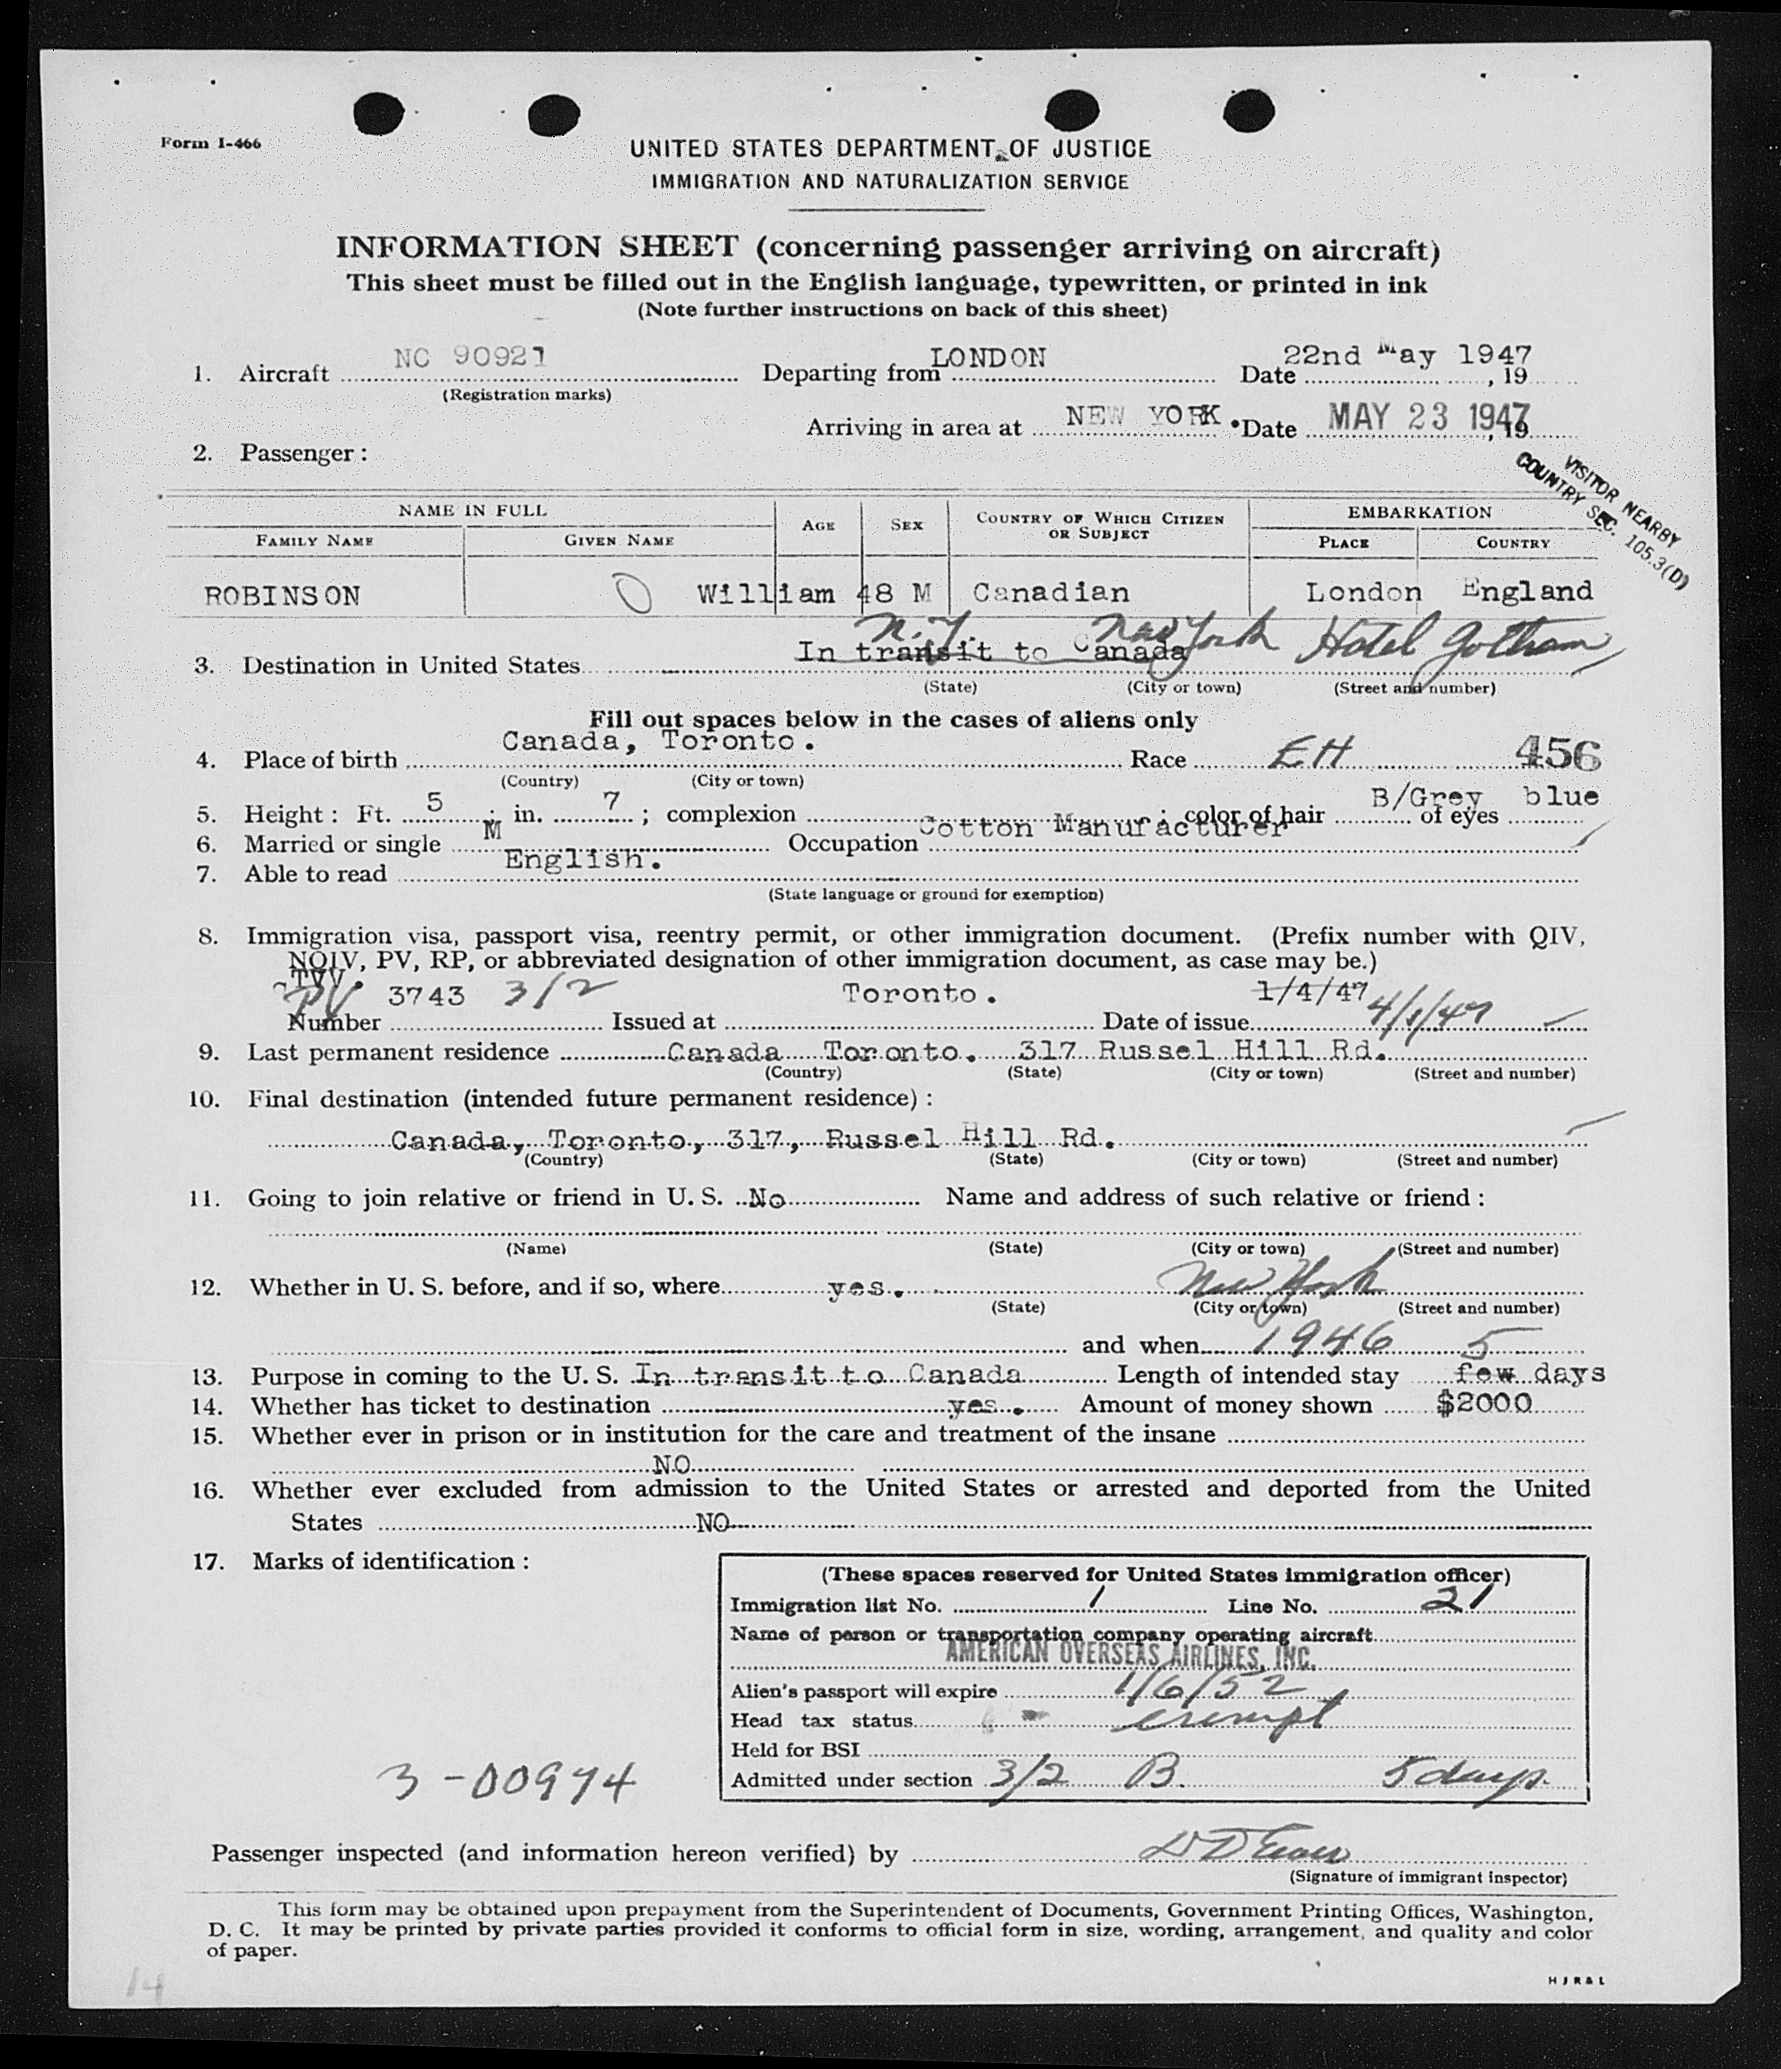 Form I-466
UNITED STATES DEPARTMENT OF JUSTICE
IMMIGRATION AND NATURALIZATION SERVICE
INFORMATION SHEET (concerning passenger arriving on aircraft)
This sheet must be filled out in the English language, typewritten, or printed in ink
(Note further instructions on back of this sheet)
1. Aircraft NC 90921 Departing from LONDON Date 22nd May 1947, 19
(Registration marks)
Arriving in area at NEW YORK. Date MAY 23 1947, 19
2. Passenger:
VISITOR NEARBY
COUNTRY SEC. 105.3(D)
NAME IN FULL AGE SEX COUNTRY OF WHICH CITIZEN OR SUBJECT EMBARKATION
FAMILY NAME GIVEN NAME PLACE COUNTRY
ROBINSON William 48 M Canadian London England
N.Y. New York Hotel Gotham
3. Destination in United States In transit to Canada
(State) (City or town) (Street and number)
Fill out spaces below in the cases of aliens only
4. Place of birth Canada, Toronto. Race EH 456
(Country) (City or town)
5. Height: Ft. 5; in. 7; complexion; color of hair B/Grey of eyes blue
6. Married or single M Occupation Cotton Manufacturer
7. Able to read English.
(State language or ground for exemption)
8. Immigration visa, passport visa, reentry permit, or other immigration document. (Prefix number with QIV,
NQIV, PV, RP, or abbreviated designation of other immigration document, as case may be.)
PV 3743 3/2 Toronto. 1/4/47 4/1/47
Number Issued at Date of issue
9. Last permanent residence Canada Toronto. 317 Russel Hill Rd.
(Country) (State) (City or town) (Street and number)
10. Final destination (intended future permanent residence):
Canada, Toronto, 317, Russel Hill Rd.
(Country) (State) (City or town) (Street and number)
11. Going to join relative or friend in U. S. No Name and address of such relative or friend:
(Name) (State) (City or town) (Street and number)
12. Whether in U. S. before, and if so, where yes. New York
(State) (City or town) (Street and number)
and when 1946 5
13. Purpose in coming to the U. S. In transit to Canada Length of intended stay few days
14. Whether has ticket to destination yes. Amount of money shown $2000
15. Whether ever in prison or in institution for the care and treatment of the insane
NO
16. Whether ever excluded from admission to the United States or arrested and deported from the United
States NO
17. Marks of identification:
(These spaces reserved for United States immigration officer)
Immigration list No. 1 Line No. 21
Name of person or transportation company operating aircraft
AMERICAN OVERSEAS AIRLINES, INC.
Alien's passport will expire 1/6/52
Head tax status exempt
Held for BSI
Admitted under section 3/2 B. 5 days.
3-00974
Passenger inspected (and information hereon verified) by
(Signature of immigrant inspector)
This form may be obtained upon prepayment from the Superintendent of Documents, Government Printing Offices, Washington,
D. C. It may be printed by private parties provided it conforms to official form in size, wording, arrangement, and quality and color
of paper.
14
H J R & L